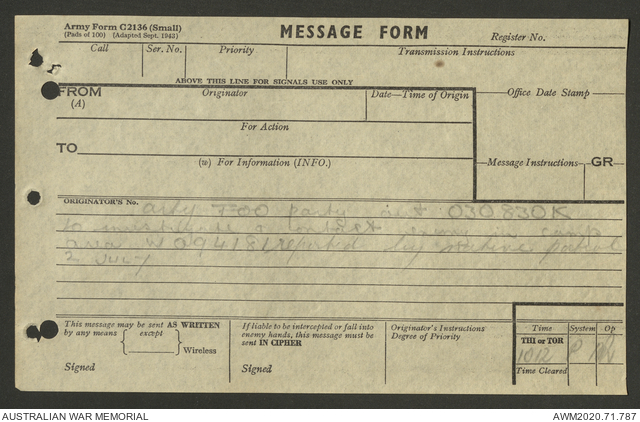 Army Form C2136 (Small)
(Pads of 100) (Adapted Sept. 1942)
MESSAGE FORM
Register No.
Call
Ser. No.
Priority
Transmission Instructions
ABOVE THIS LINE FOR SIGNALS USE ONLY
FROM
(A)
Originator
Date—Time of Origin
Office Date Stamp
For Action
TO
(W) For Information (INFO.)
Message Instructions
GR
ORIGINATOR'S No.
arty FOO party out 030830K
to investigate & contact enemy in camp
area reported by patrol
2 July
This message may be sent AS WRITTEN
by any means
except
Wireless
Signed
If liable to be intercepted or fall into
enemy hands, this message must be
sent IN CIPHER
Signed
Originator's Instructions
Degree of Priority
Time
System
Op
THI or TOR
1012 P
Time Cleared
AUSTRALIAN WAR MEMORIAL
AWM2020.71.787